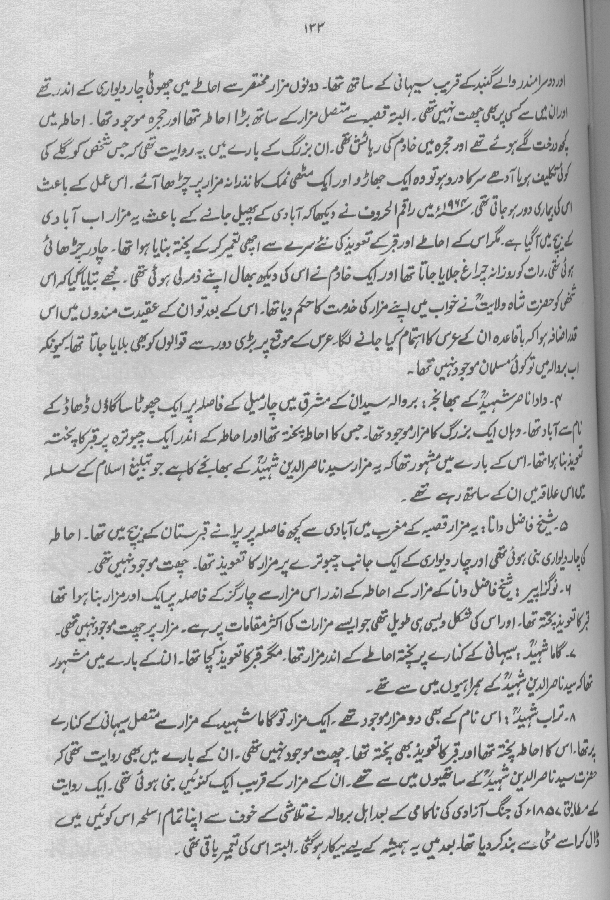 ۱۳۳
اور دوسرا مندر والے گنبد کے قریب سیہانی کے ساتھ تھا۔ دونوں مزار مختصر سے احاطے میں چھوٹی چار دیواری کے اندر تھے
اور ان میں سے کسی پر بھی چھت نہیں تھی۔ البتہ قصبہ سے متصل مزار کے ساتھ بڑا احاطہ تھا اور حجرہ موجود تھا۔ احاطہ میں
کچھ درخت لگے ہوئے تھے اور حجرہ میں خادم کی رہائش تھی۔ ان بزرگ کے بارے میں یہ روایت تھی کہ جس شخص کو گلے کی
کوئی تکلیف ہو یا آدھے سر کا درد ہو تو وہ ایک جھاڑو اور ایک مٹھی نمک کا نذرانہ مزار پر چڑھا آئے۔ اس عمل کے باعث
اس کی بیماری دور ہو جاتی تھی۔ ۱۹۶۴ء میں راقم الحروف نے دیکھا کہ آبادی کے پھیل جانے کے باعث یہ مزار اب آبادی
کے بیچ میں آ گیا ہے۔ مگر اس کے احاطے اور قبر کے تعویذ کی نئے سرے سے اچھی تعمیر کر کے پختہ بنایا ہوا تھا۔ چادر چڑھائی
ہوئی تھی۔ رات کو روزانہ چراغ جلایا جاتا تھا اور ایک خادم نے اس کی دیکھ بھال اپنے ذمہ لی ہوئی تھی۔ مجھے بتایا گیا کہ اس
شخص کو حضرت شاہ ولایتؒ نے خواب میں اپنے مزار کی خدمت کا حکم دیا تھا۔ اس کے بعد تو ان کے عقیدت مندوں میں اس
قدر اضافہ ہوا کہ باقاعدہ ان کے عرس کا اہتمام کیا جانے لگا۔ عرس کے موقع پر بڑی دور سے قوالوں کو بھی بلایا جاتا تھا۔ کیونکہ
اب بروالہ میں تو کوئی مسلمان موجود نہیں تھا۔
۴۔ دادا ناصر شہیدؒ کے بھانجے: بروالہ سیدان کے مشرق میں چار میل کے فاصلہ پر ایک چھوٹا سا گاؤں ڈھاڈ کے
نام سے آباد تھا۔ وہاں ایک بزرگ کا مزار موجود تھا۔ جس کا احاطہ پختہ تھا اور احاطہ کے اندر ایک چبوترہ پر قبر کا پختہ
تعویذ بنا ہوا تھا۔ اس کے بارے میں مشہور تھا کہ یہ مزار سید ناصر الدین شہیدؒ کے بھانجے کا ہے جو تبلیغ اسلام کے سلسلہ
میں اس علاقہ میں ان کے ساتھ رہے تھے۔
۵۔ شیخ فاضل دانا: یہ مزار قصبہ کے مغرب میں آبادی سے کچھ فاصلہ پر پرانے قبرستان کے بیچ میں تھا۔ احاطہ
کی چار دیواری بنی ہوئی تھی اور چار دیواری کے ایک جانب چبوترے پر مزار کا تعویذ تھا۔ چھت موجود نہیں تھی۔
۶۔ نو گزا پیر: شیخ فاضل دانا کے مزار کے احاطہ کے اندر اس مزار سے چار گز کے فاصلہ پر ایک اور مزار بنا ہوا تھا
قبر کا تعویذ پختہ تھا۔ اور اس کی شکل ویسی ہی طویل تھی جو ایسے مزارات کی اکثر مقامات پر ہے۔ مزار پر چھت موجود نہیں تھی۔
۷۔ گاما شہیدؒ: سیہانی کے کنارے پر پختہ احاطے کے اندر مزار تھا۔ مگر قبر کا تعویذ کچا تھا۔ ان کے بارے میں مشہور
تھا کہ سید ناصر الدین شہیدؒ کے ہمراہیوں میں سے تھے۔
۸۔ تراب شہیدؒ: اس نام کے بھی دو مزار موجود تھے۔ ایک مزار تو گاما شہید کے مزار سے متصل سیہانی کے کنارے
پر تھا۔ اس کا احاطہ پختہ تھا اور قبر کا تعویذ بھی پختہ تھا۔ چھت موجود نہیں تھی۔ ان کے بارے میں بھی روایت تھی کہ
حضرت سید ناصر الدین شہیدؒ کے ساتھیوں میں سے تھے۔ ان کے مزار کے قریب ایک کنوئیں بنی ہوئی تھی۔ ایک روایت
کے مطابق ۱۸۵۷ء کی جنگ آزادی کی ناکامی کے بعد اہل بروالہ نے تلاشی کے خوف سے اپنا تمام اسلحہ اس کوئیں میں
ڈال کر اسے مٹی سے بند کر دیا تھا۔ بعد میں یہ ہمیشہ کے لیے بیکار ہو گئی۔ البتہ اس کی تعمیر باقی تھی۔